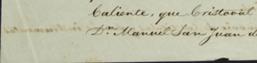 Caliente, que Cristoval
Dn. Manuel San Juan d